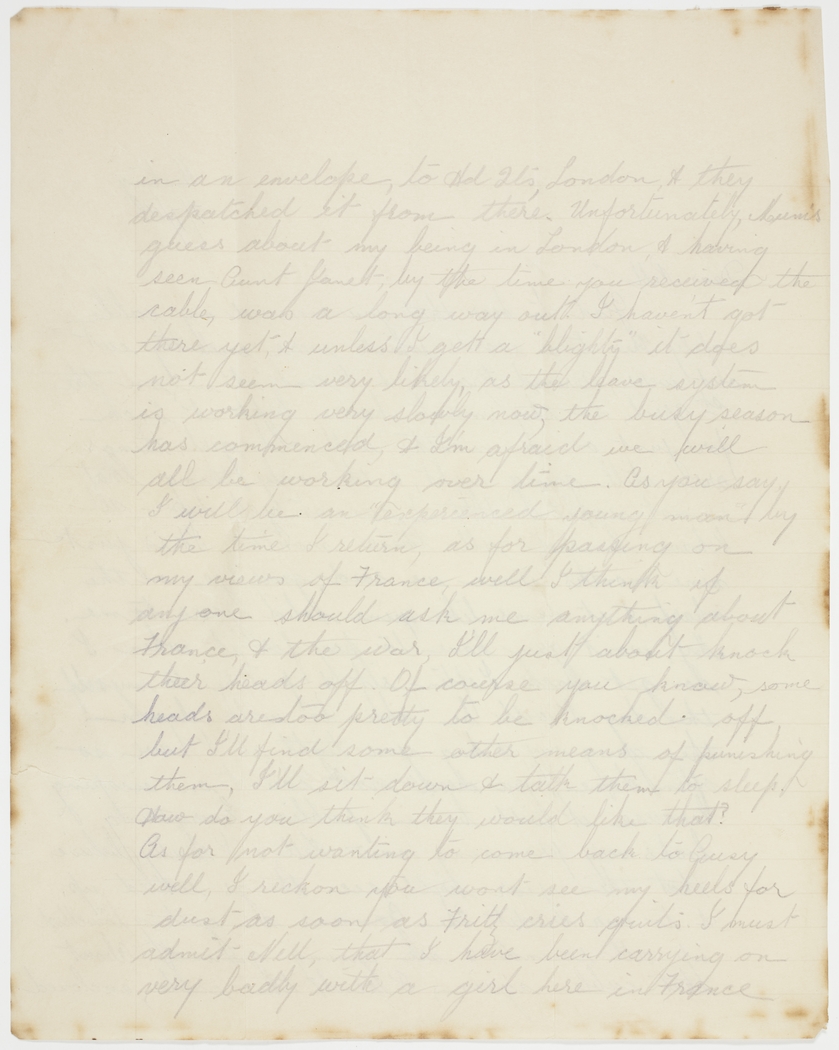 in an envelope, to Hd Qts, London, & they
despatched it from there. Unfortunately, Mum's
guess about my being in London, & having
seen Aunt Janet, by the time you received the
cable, was a long way out. I haven't got
there yet, & unless I get a "blighty" it does
not seem very likely, as the leave system
is working very slowly now, the busy season
has commenced, & I'm afraid we will
all be working over time. As you say,
I will be an "experienced young man" by
the time I return, as for passing on
my views of France, well I think if
any one should ask me anything about
France, & the war, I'll just about knock
their heads off. Of course you know, some
heads are too pretty to be knocked off,
but I'll find some other means of punishing
them, I'll sit down & talk them to sleep.
How do you think they would like that?
As for not wanting to come back to
well, I reckon you wont see my heels for
dust, as soon as Fritz cries quits. I must
admit Nell, that I have been carrying on
very badly with a girl here in France